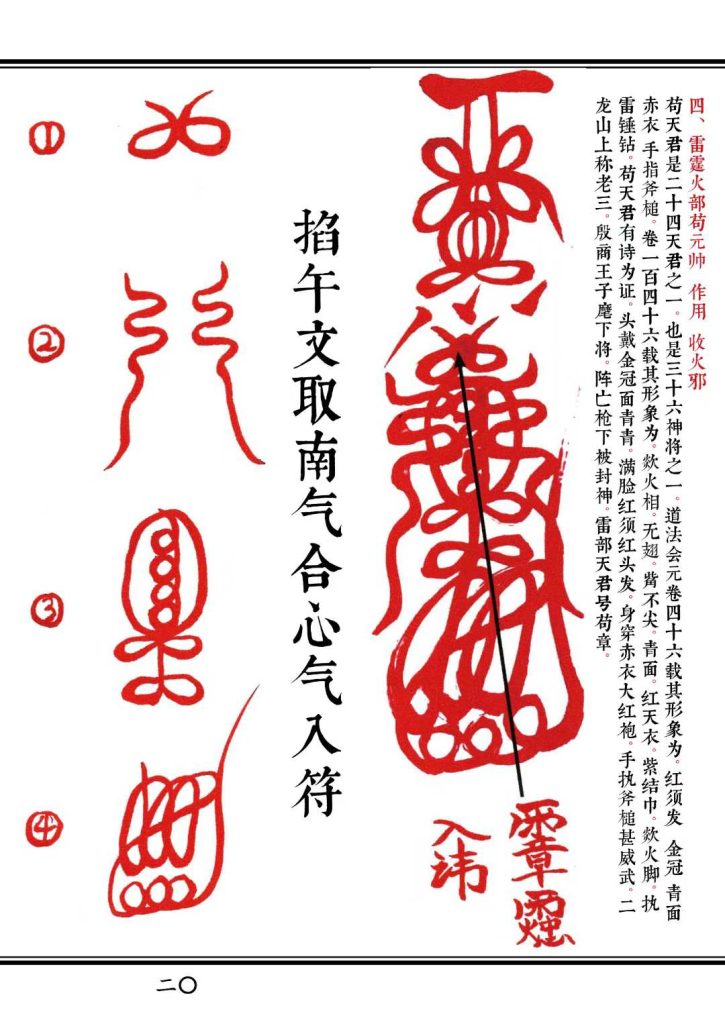 四、雷霆火部苟元帅 作用 收火邪
苟天君是二十四天君之一。也是三十六神将之一。道法会元卷四十六载其形象为。红须发 金冠 青面
赤衣 手指斧槌。卷一百四十六载其形象为。欻火相。无翅。觜不尖。青面。红天衣。紫结巾。欻火脚。执
雷锤钻。苟天君有诗为证。头戴金冠面青青。满脸红须红头发。身穿赤衣大红袍。手执斧槌甚威武。二
龙山上称老三。殷商王子麾下将。阵亡枪下被封神。雷部天君号苟章。
入讳
掐午文取南气合心气入符
①
②
③
④
二〇